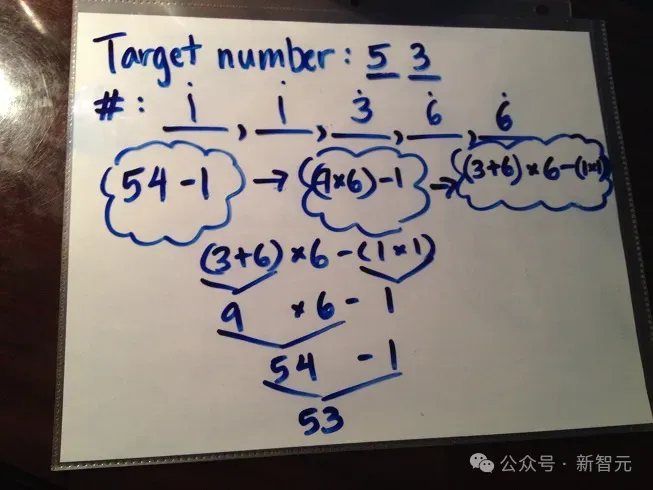 Target number: 5 3
#: 1, 1, 3, 6, 6
54-1 → (9×6)-1 → (3+6)×6-(1×1)
(3+6)×6-(1×1)
9 ×6- 1
54 -1
53
公众号·新智元